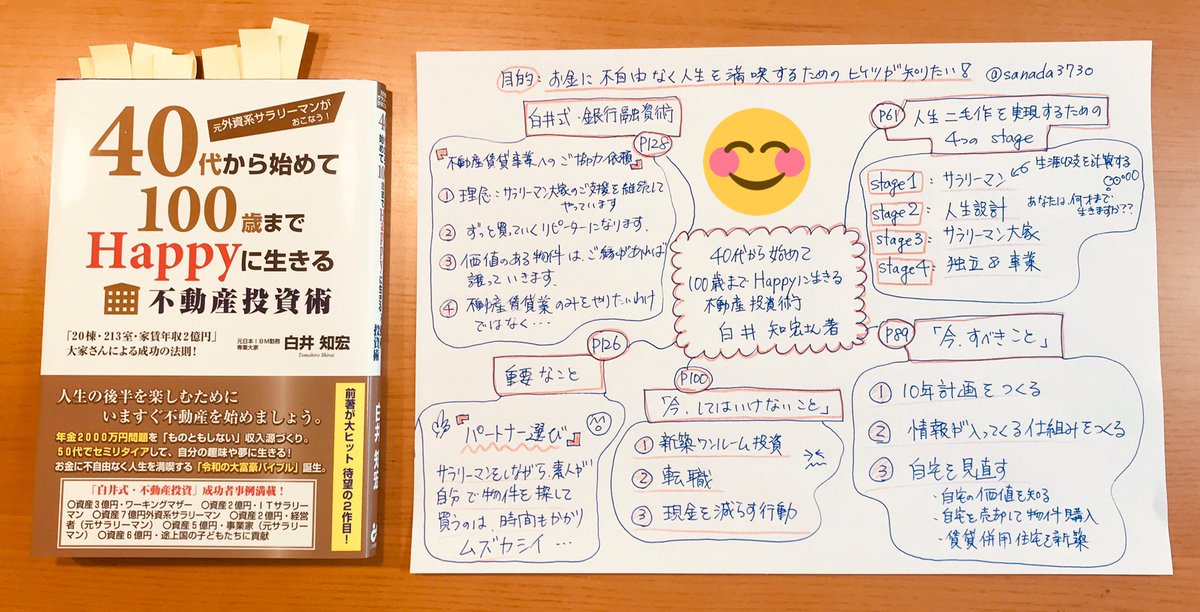 元外資系サラリーマンが
おこなう!
40代から始めて
100歳まで
Happyに生きる
不動産投資術
「20棟・213室・家賃年収2億円」
大家さんによる成功の法則!
元日本IBM勤務
専業大家
白井 知宏
Tomohiro Shirai
人生の後半を楽しむために
いますぐ不動産を始めましょう。
年金2000万円問題を「ものともしない」収入源づくり。
50代でセミリタイアして、自分の趣味や夢に生きる!
お金に不自由なく人生を満喫する「令和の大富豪バイブル」誕生。
「白井式・不動産投資」成功者事例満載!
○資産3億円・ワーキングマザー ○資産2億円・ITサラリー
マン ○資産7億円外資系サラリーマン ○資産2億円・経営
者(元サラリーマン) ○資産5億円・事業家(元サラリー
マン) ○資産6億円・途上国の子どもたちに貢献
前著が大ヒット 待望の2作目!
白井 知宏
目的:お金に不自由なく人生を満喫するためのヒケツが知りたい!
@sanada3730
白井式・銀行融資術
P128
『不動産賃貸事業へのご協力依頼』
① 理念:サラリーマン大家のご支援を継続して
やっています
② ずっと買っていくリピーターになります.
③ 価値のある物件は、ご縁があれば
譲っていきます.
④ 不動産賃貸業のみをやりたいわけ
ではなく…
P61
人生二毛作を実現するための
4つの stage
stage1:サラリーマン
生涯収支を計算する
あなたは何才まで
生きますか??
stage2:人生設計
stage3:サラリーマン大家
stage4:独立&事業
40代から始めて
100歳までHappyに生きる
不動産投資術
白井 知宏さん著
P126
重要なこと
『パートナー選び』
サラリーマンをしながら、素人が
自分で物件を探して
買うのは 時間もかかり
ムズカシイ…
P100
「今、してはいけないこと」
① 新築ワンルーム投資
② 転職
③ 現金を減らす行動
P89
「今、すべきこと」
① 10年計画をつくる
② 情報が入ってくる仕組みをつくる
③ 自宅を見直す
・自宅の価値を知る
・自宅を売却して物件購入
・賃貸併用住宅を新築